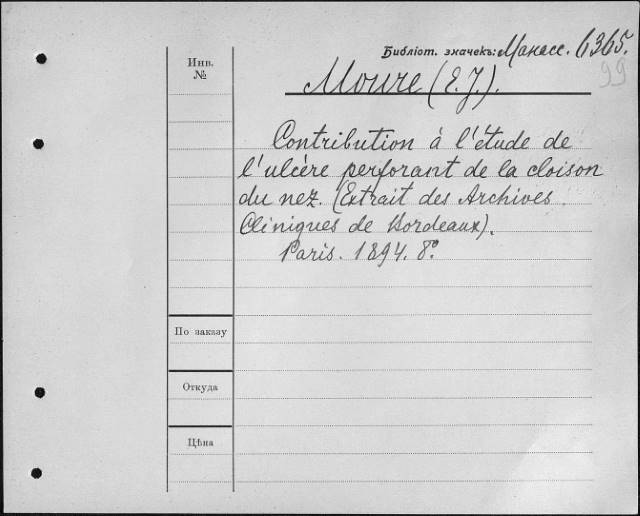 Библіот. значекъ: Манасс. 6365.
99
Инв.
№
Moure (E. J.).
Contribution à l'étude de
l'ulcère perforant de la cloison
du nez. (Extrait des Archives
Cliniques de Bordeaux).
Paris. 1894. 8°.
По заказу
Откуда
Цѣна